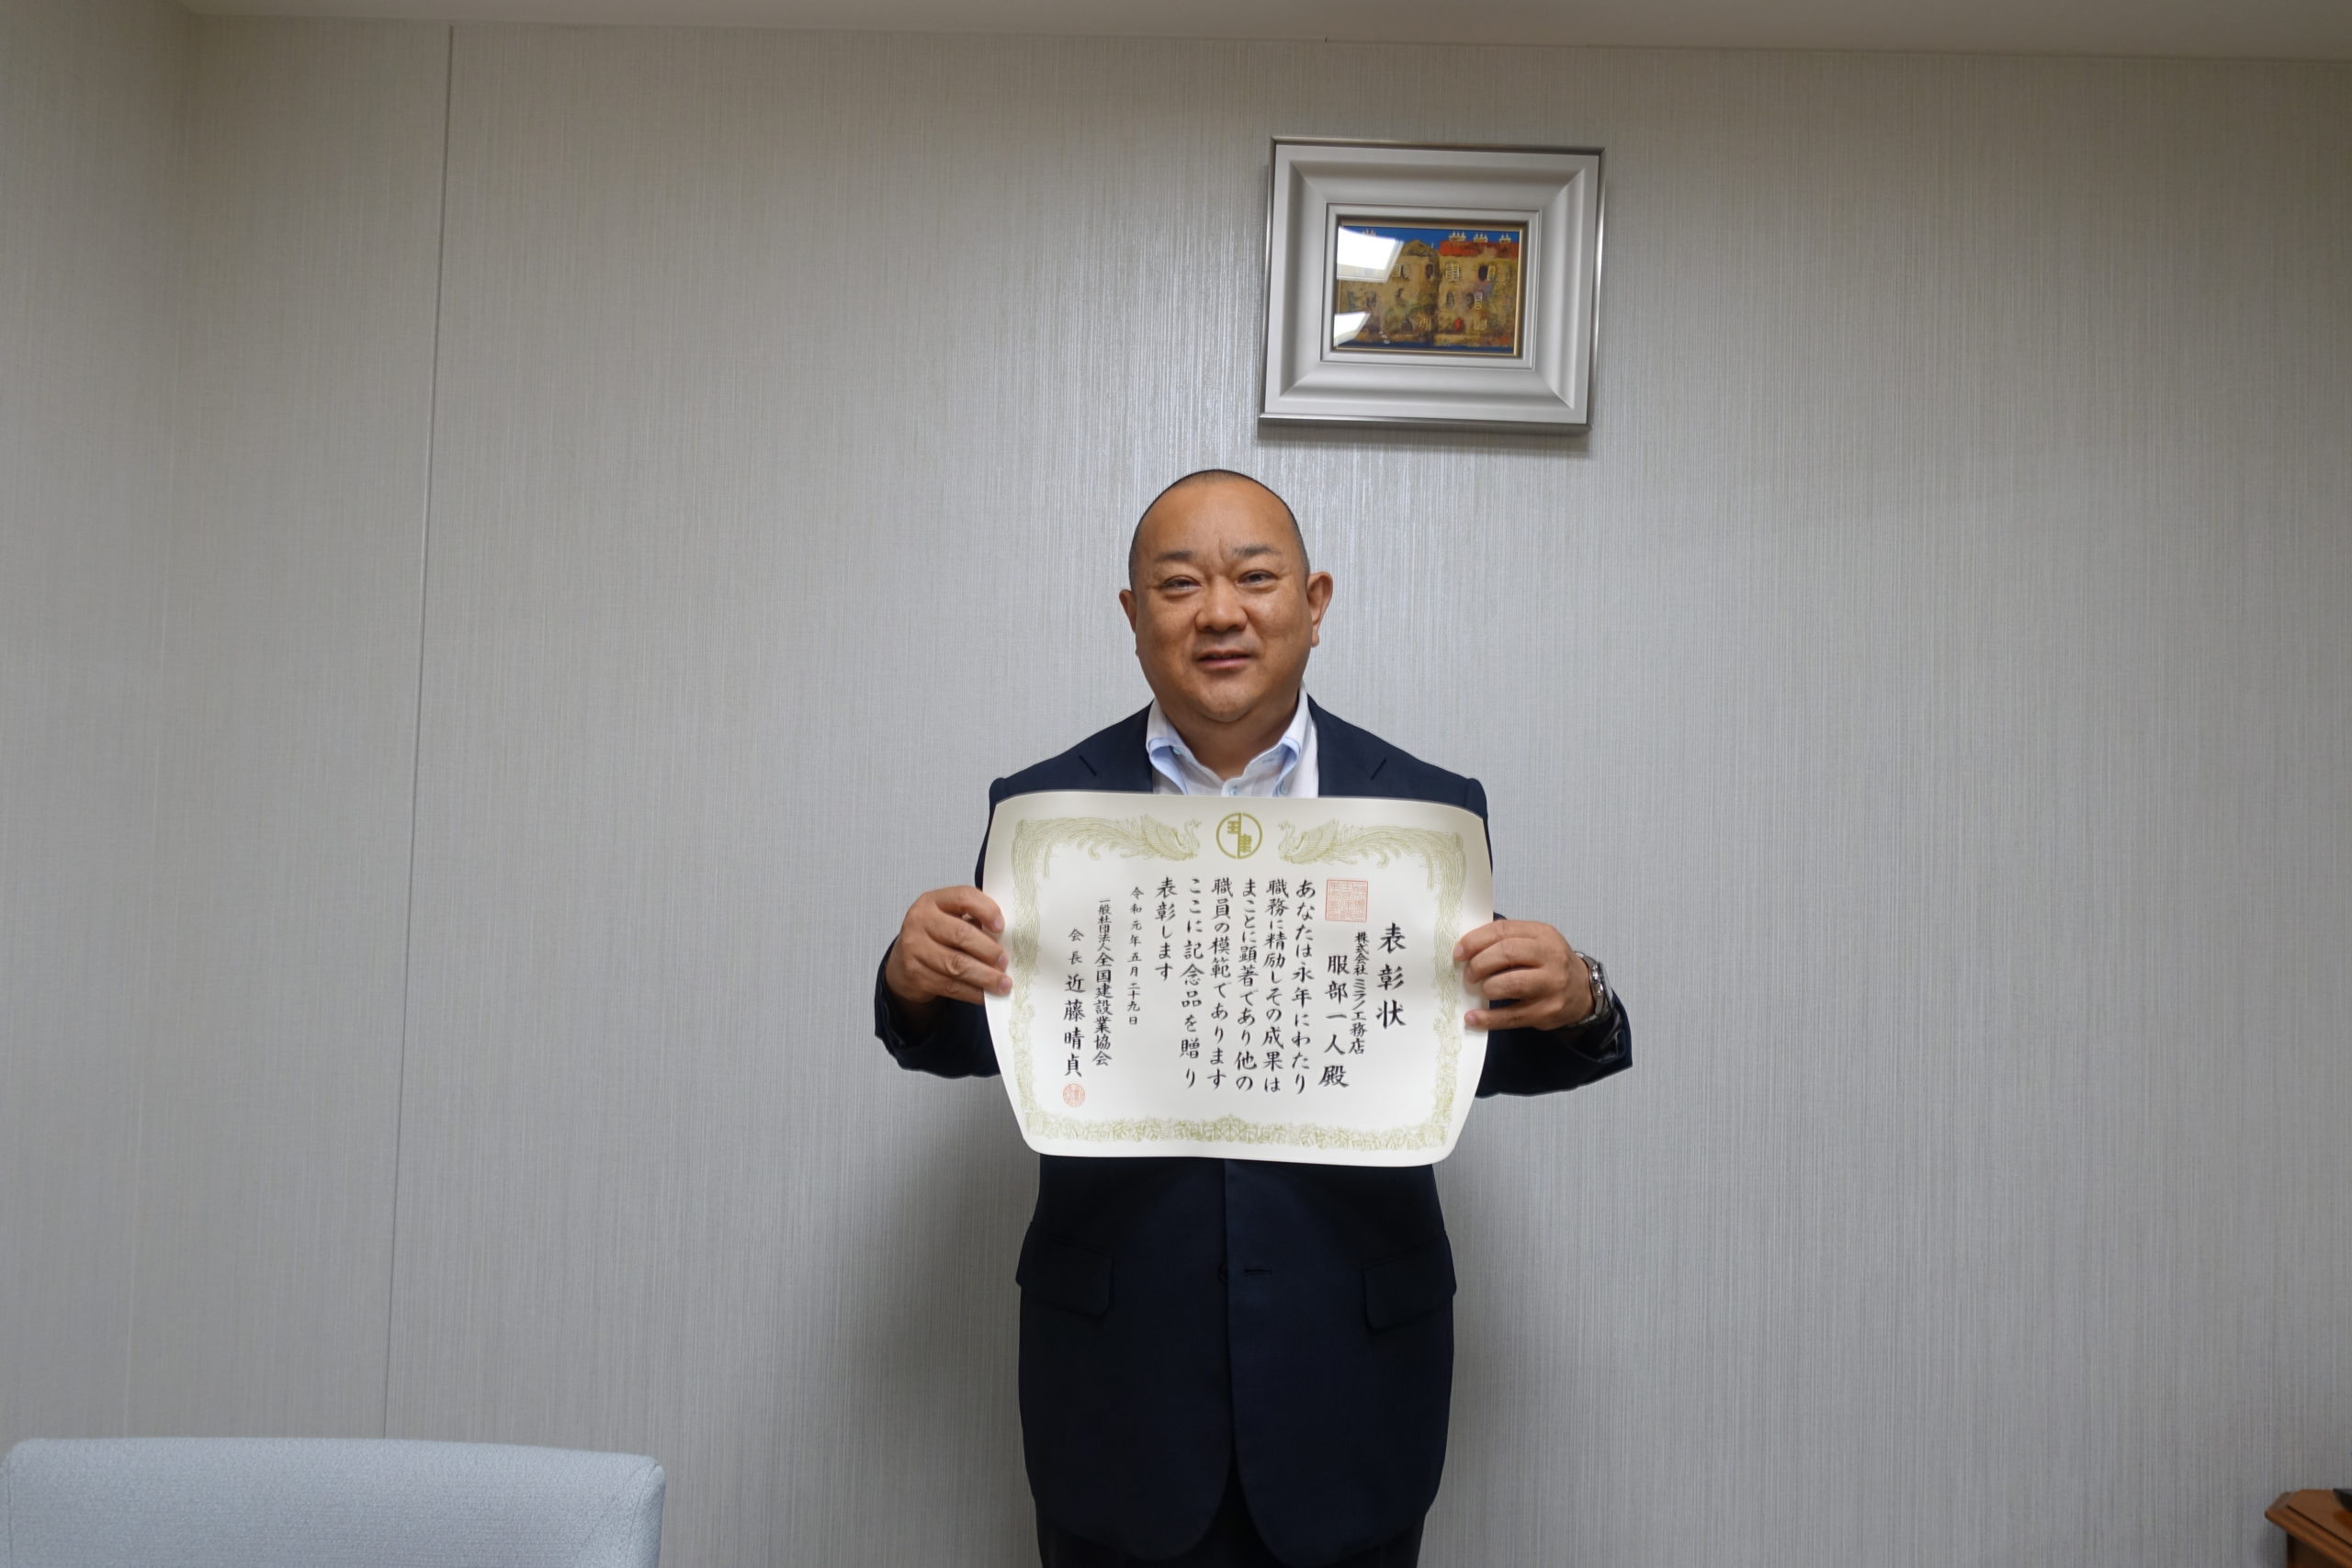 表彰状
株式会社ミラノ工務店
服部一人殿
あなたは永年にわたり
職務に精励しその成果は
まことに顕著であり他の
職員の模範であります
ここに記念品を贈り
表彰します
令和元年五月二十九日
一般社団法人全国建設業協会
会長 近藤晴貞